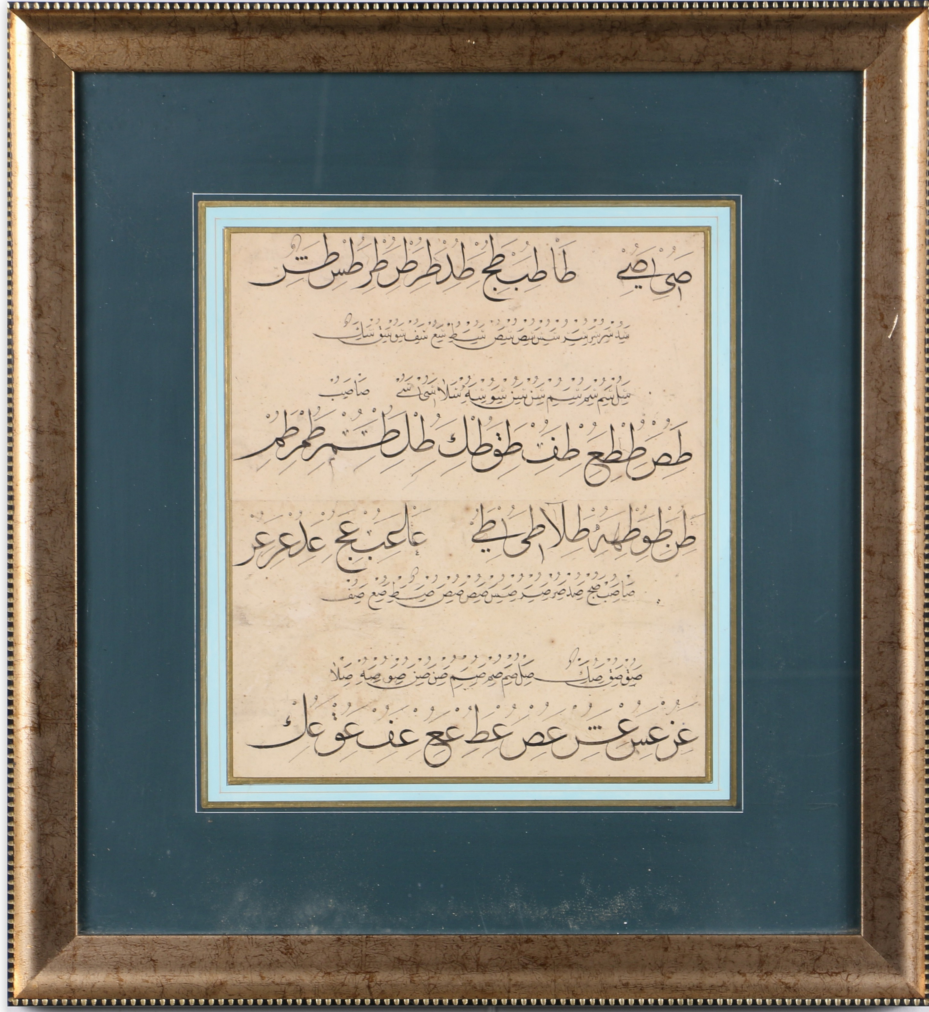 صى صے طا طب طج طد طر طر طر طس طس
سد سر سر سس سص سص سط سع سف سو سق سك
سل سم سم سم سن سن سو سه سلا سى سے صا صب
طص طط طع طف طق طك طل طم طم طم
طن طن طو طه طه طلا طى طے عا عب عج عد عر عر
صا صب صج صد صر صر صس صص صط صع صف
صو صق صك صل صم صم صم صن صن صو صه صلا
عر عس عس عص عط عع عف عق عك